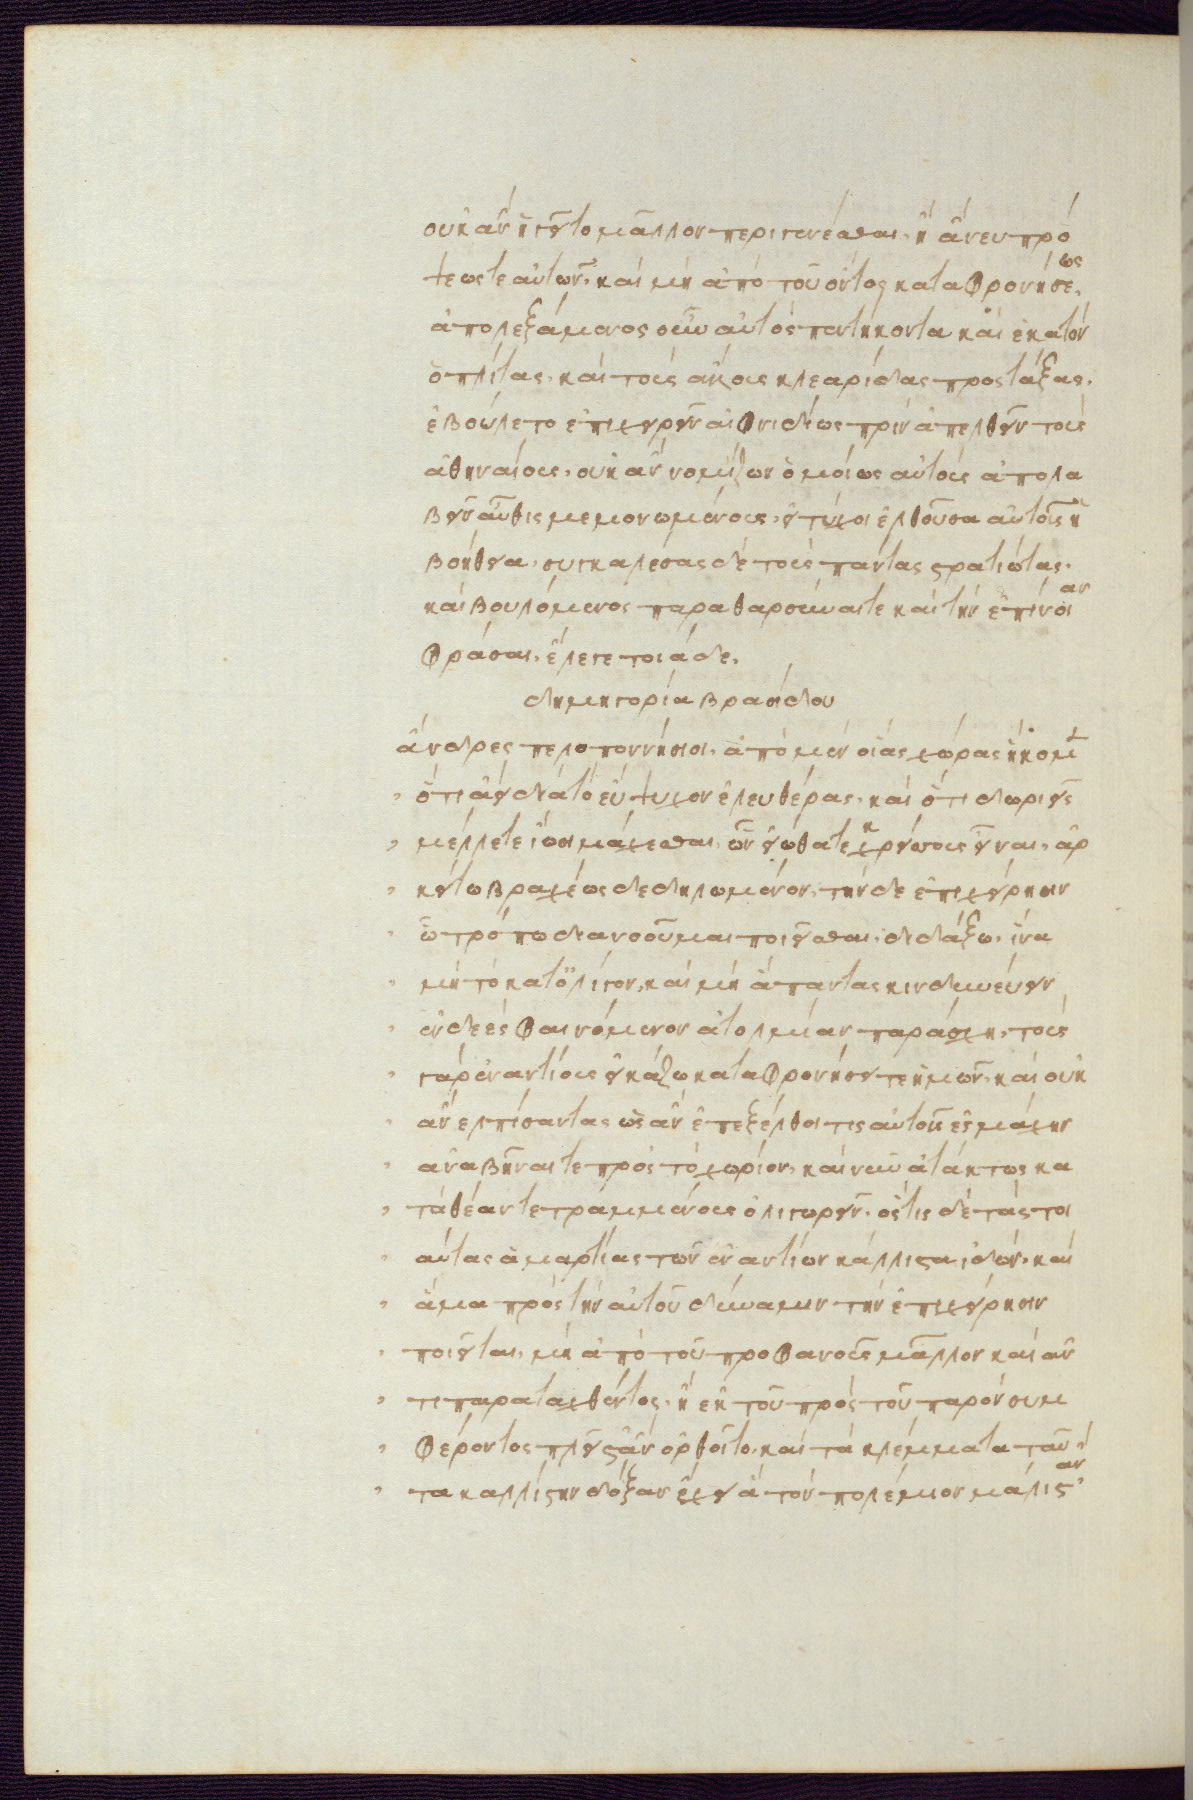 οὐκ ἂν ἡγεῖτο μᾶλλον περιγενέσθαι, ἢ ἄνευ προό
ψεώς τε αὐτῶν, καὶ μὴ ἀπὸ τοῦ ὄντος καταφρονήσεως,
ἀπολεξάμενος οὖν αὐτὸς πεντήκοντα καὶ ἑκατὸν
ὁπλίτας, καὶ τοὺς ἄλλους κλεαρίδας προστάξας,
ἐβούλετο ἐπιχειρεῖν αἰφνιδίως πρὶν ἀπελθεῖν τοὺς
ἀθηναίους, οὐκ ἂν νομίζων ὁμοίως αὐτοὺς ἀπολα
βεῖν αὖθις μεμονωμένους, εἰ τύχοι ἐλθοῦσα αὐτοῖς ἡ
βοήθεια, συγκαλέσας δὲ τοὺς πάντας στρατιώτας,
καὶ βουλόμενος παραθαρσῦναί τε καὶ τὴν ἐπίνοιαν
φράσαι, ἔλεγε τοιάδε.
δημηγορία βρασίδου
ἄνδρες πελοποννήσιοι, ἀπὸ μὲν οἵας χώρας ἥκομεν
ὅτι ἀεὶ διὰ τὸ εὔψυχον ἐλευθέρας, καὶ ὅτι δωριεῖς
μέλλετε ἴωσι μάχεσθαι, ὧν εἰώθατε κρείσσους εἶναι, ἀρ
κείτω βραχέως δεδηλωμένον, τὴν δὲ ἐπιχείρησιν
ᾧ τρόπῳ διανοοῦμαι ποιεῖσθαι, διδάξω, ἵνα
μὴ τὸ κατ' ὀλίγον, καὶ μὴ ἅπαντας κινδυνεύειν
ἐνδεὲς φαινόμενον ἀτολμίαν παράσχῃ, τοὺς
γὰρ ἐναντίους εἰκάζω καταφρονήσει τε ἡμῶν, καὶ οὐκ
ἂν ἐλπίσαντας ὡς ἂν ἐπεξέλθοι τις αὐτοῖς ἐς μάχην
ἀναβῆναί τε πρὸς τὸ χωρίον, καὶ νῦν ἀτάκτως κα
τὰ θέαν τετραμμένους ὀλιγωρεῖν, ὅστις δὲ τὰς τοι
αύτας ἁμαρτίας τῶν ἐναντίων κάλλιστα ἰδών, καὶ
ἅμα πρὸς τὴν αὑτοῦ δύναμιν τὴν ἐπιχείρησιν
ποιεῖται, μὴ ἀπὸ τοῦ προφανοῦς μᾶλλον καὶ ἀν
τιπαραταχθέντος, ἢ ἐκ τοῦ πρὸς τοῦ παρὸν συμ
φέροντος πλεῖστ' ἂν ὀρθοῖτο, καὶ τὰ κλέμματα ταῦ
τα καλλίστην δόξαν ἔχει ἃ τὸν πολέμιον μάλιστ' ἄν